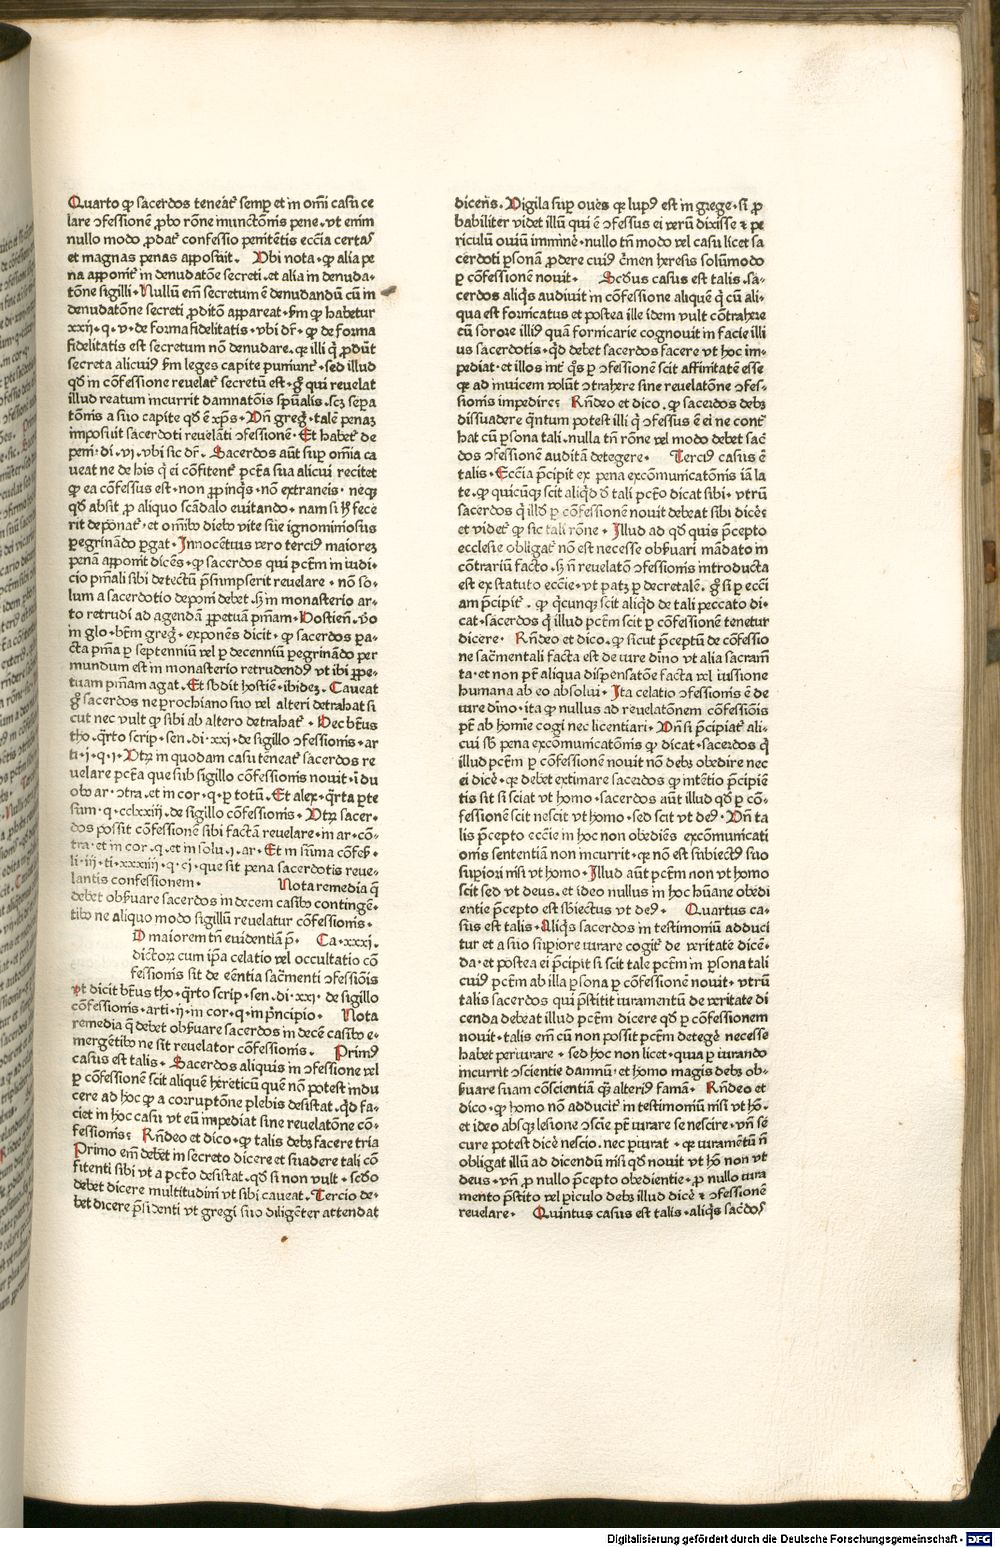 Quarto ꝙ sacerdos teneat᷑ semꝑ et in om̄i casu ce
lare ↄfessionē ꝓbo rōne iniunctōnis pene. vt enim
nullo modo ꝓdat᷑ confessio penitētis ecc̄ia certas
et magnas penas apposuit. Vbi nota. ꝙ alia pe
na apponit᷑ in denudatōne secreti. et alia in denuda-
tōne sigilli. Nullū em̄ secretum ē denudandū cū in
denudatōne secreti ꝓditō appareat. s̄m ꝙ habetur
xxij. q. v. de forma fidelitatis. vbi dr̄. ꝙ de forma
fidelitatis est secretum nō denudare. qꝛ illi q̄ ꝓdūt
secreta alicuiꝰ s̄m leges capite puniunt᷑. sed illud
qd̄ in cōfessione reuelat᷑ secretū est. gͦ qui reuelat
illud reatum incurrit damnatōis spūalis. scꝫ sepa
tōnis a suo capite qd̄ ē xp̄s. Vn̄ greg. talē penaꝫ
imposuit sacerdoti reuelāti ↄfessionē. Et habet᷑ de
peni. di. vi. vbi sic dr̄. Sacerdos aūt suꝑ om̄ia ca
ueat ne de his q̄ ei cōfitent᷑ pctā sua alicui recitet
ꝙ ea cōfessus est. non ꝓpinqͥs. nō extraneis. neqꝫ
qd̄ absit ꝓ aliquo scādalo euitando. nam si hͦ fece
rit deponat᷑. et om̄ibꝰ diebꝰ vite sue ignominiosus
ꝑegrinādo ꝑgat. Innocētius vero terciꝰ maiorem
penā apponit dicēs. ꝙ sacerdos qui pctm̄ in iudi-
cio pn̄iali sibi detectū p̄sumpserit reuelare. nō so-
lum a sacerdotio deponi debet. sꝫ in monasterio ar-
to retrudi ad agendā ꝑpetuā pn̄iam. Hostien̄. v̄o
in glo. btm̄ greg. exponēs dicit. ꝙ sacerdos pa-
cta pn̄ia ꝑ septenniū vel ꝑ decenniū ꝑegrinādo per
mundum est in monasterio retrudendꝰ vt ibi ꝑpe-
tuam pn̄iam agat. Et sb̄dit hostiē. ibideꝫ. Caueat
gͦ sacerdos ne ꝑrochiano suo vel alteri detrahat si
cut nec vult ꝙ sibi ab altero detrahat᷑. Hec btūs
tho. q̄rto scrip. sen. di. xxi. de sigillo ↄfessionis. ar
ti. i. q. i. Vtꝝ in quodam casu teneat᷑ sacerdos re
uelare pctā que sub sigillo cōfessionis nouit. ī du
obꝰ ar. ↄtra. et in cor. q. ꝑ totū. Et alex. q̄rta ꝑte
sum. q. cclxxiij. de sigillo cōfessionis. Vtꝝ sacer-
dos possit cōfessionē sibi factā reuelare. in ar. cō-
tra. et in cor. q. et in solu. i. ar. Et in sūma cōfes.
li. iij. ti. xxxiiij. q. ci. que sit pena sacerdotis reue-
lantis confessionem. Nota remedia q̄
debet obs̄uare sacerdos in decem casibꝰ contingē-
tibꝰ ne aliquo modo sigillū reuelatur cōfessionis.
D maiorem tn̄ euidentiā p̄. Ca. xxxi.
dictoꝝ cum ip̄a celatio vel occultatio cō
fessionis sit de eēntia sac̄menti ↄfessiōis
vt dicit btūs tho. q̄rto scrip. sen. di. xxi. de sigillo
cōfessionis. arti. ij. in cor. q. in p̄ncipio. Nota
remedia q̄ debet obs̄uare sacerdos in decē casibꝰ e-
mergētibꝰ ne sit reuelator cōfessionis. Primꝰ
casus est talis. Sacerdos aliquis in ↄfessione vel
ꝑ cōfessionē scit aliquē hereticū quē nō potest indu
cere ad hoc ꝙ a corruptōne plebis desistat. qd̄ fa-
ciet in hoc casu vt eū impediat sine reuelatōne cō-
fessionis: Rn̄deo et dico. ꝙ talis debꝫ facere tria
Primo em̄ debet in secreto dicere et suadere tali cō
fitenti sibi vt a pctō desistat. qd̄ si non vult. scd̄o
debet dicere multitudini vt sibi caueat. Tercio de-
bet dicere p̄sidenti vt gregi suo diligēter attendat
dicens. Vigila suꝑ oues qꝛ lupꝰ est in grege. si ꝓ
babiliter videt illū qui ē ↄfessus ei verū dixisse ⁊ pe
riculū ouiū imminē. nullo tn̄ modo vel casu licet sa
cerdoti ꝑsonā ꝓdere cuiꝰ c̄men heresis solūmodo
ꝑ cōfessionē nouit. Scd̄us casus est talis. sa-
cerdos aliqͥs audiuit in cōfessione aliquē q̄ cū ali-
qua est fornicatus et postea ille idem vult cōtrahere
cū sorore illiꝰ quā fornicarie cognouit in facie illi
us sacerdotis. qd̄ debet sacerdos facere vt hoc im-
pediat. et illos int᷑ qͦs ꝑ ↄfessionē scit affinitatē esse
qꝛ ad inuicem volūt ↄtrahere sine reuelatōne ↄfes-
sionis impedire: Rn̄deo et dico. ꝙ sacerdos debꝫ
dissuadere q̄ntum potest illi q̄ ↄfessus ē ei ne cont᷑
hat cū ꝑsona tali. nulla tn̄ rōne vel modo debet sac̄
dos ↄfessionē auditā detegere. Terciꝰ casus ē
talis. Ecc̄ia p̄cipit ex pena excom̄unicatōnis iā la
te. ꝙ quicūqꝫ scit aliqd̄ d̄ tali pctō dicat sibi. vtrū
sacerdos q̄ illd̄ ꝑ cōfessionē nouit debeat sibi dicēs
et videt᷑ ꝙ sic tali rōne. Illud ad qd̄ quis p̄cepto
ecclesie obligat᷑ nō est necesse obs̄uari mādato in
cōtrariū facto. sꝫ n̄ reuelatō ↄfessionis introducta
est ex statuto ecc̄ie. vt patꝫ ꝑ decretalē. gͦ si ꝑ ecc̄i
am p̄cipit᷑. ꝙ q̄cunqꝫ scit aliqd̄ de tali peccato di-
cat. sacerdos q̄ illud pctm̄ scit ꝑ cōfessionē tenetur
dicere. Rn̄deo et dico. ꝙ sicut p̄ceptū de cōfessio
ne sac̄mentali facta est de iure diuino vt alia sacram̄
ta. et non pt̄ aliqua dispensatōe facta vel iussione
humana ab eo absolui. Ita celatio ↄfessionis ē de
iure diuino. ita ꝙ nullus ad reuelatōnem cōfessiōis
pt̄ ab homīe cogi nec licentiari. Vn̄ si p̄cipiat᷑ ali-
cui sb̄ pena excōmunicatōnis ꝙ dicat. sacerdos q̄
illud pctm̄ ꝑ cōfessionē nouit nō debꝫ obedire nec
ei dicē. qꝛ debet extimare sacerdos ꝙ intētio p̄cipiē
tis sit si sciat vt homo. sacerdos aūt illud qd̄ ꝑ cō-
fessionē scit nescit vt homo. sed scit vt deꝰ. Vn̄ ta
lis p̄cepto ecc̄ie in hoc non obediēs excōmunicati
onis sententiā non incurrit. qꝛ nō est subiectꝰ suo
suꝑiori nisi vt homo. Illud aūt pctm̄ non vt homo
scit sed vt deus. et ideo nullus in hoc hūane obedi
entie p̄cepto est sb̄iectus vt deꝰ. Quartus ca-
sus est talis. Aliqͥs sacerdos in testimoniū adduci
tur et a suo suꝑiore iurare cogit᷑ de veritate dicē-
da. et postea ei p̄cipit si scit tale pctm̄ in ꝑsona tali
cuiꝰ pctm̄ ab illa ꝑsona ꝑ cōfessionē nouit. vtrū
talis sacerdos qui p̄stitit iuramentū de veritate di
cenda debeat illud pctm̄ dicere qd̄ ꝑ cōfessionem
nouit. talis em̄ cū non possit pctm̄ detegē necesse
habet periurare. sed hoc non licet. quia ꝑ iurando
incurrit ↄscientie damnū. et homo magis debꝫ ob-
s̄uare suam cōscientiā qꝫ alteriꝰ famā. Rn̄deo et
dico. ꝙ homo nō adducit᷑ in testimoniū nisi vt hō.
et ideo absqꝫ lesione ↄscīe pt̄ iurare se nescire. vn̄ se
cure potest dicē nescio. nec ꝑiurat. qꝛ iuramentū n̄
obligat illū ad dicendū nisi qd̄ nouit vt hō non vt
deus. vn̄ ꝓ nullo p̄cepto obedientie. ꝓ nullo iura
mento p̄stito vel ꝑiculo debꝫ illud dicē ⁊ ↄfessionē
reuelare. Quintus casus est talis. aliqͥs sac̄dos
Digitalisierung gefördert durch die Deutsche Forschungsgemeinschaft - DFG